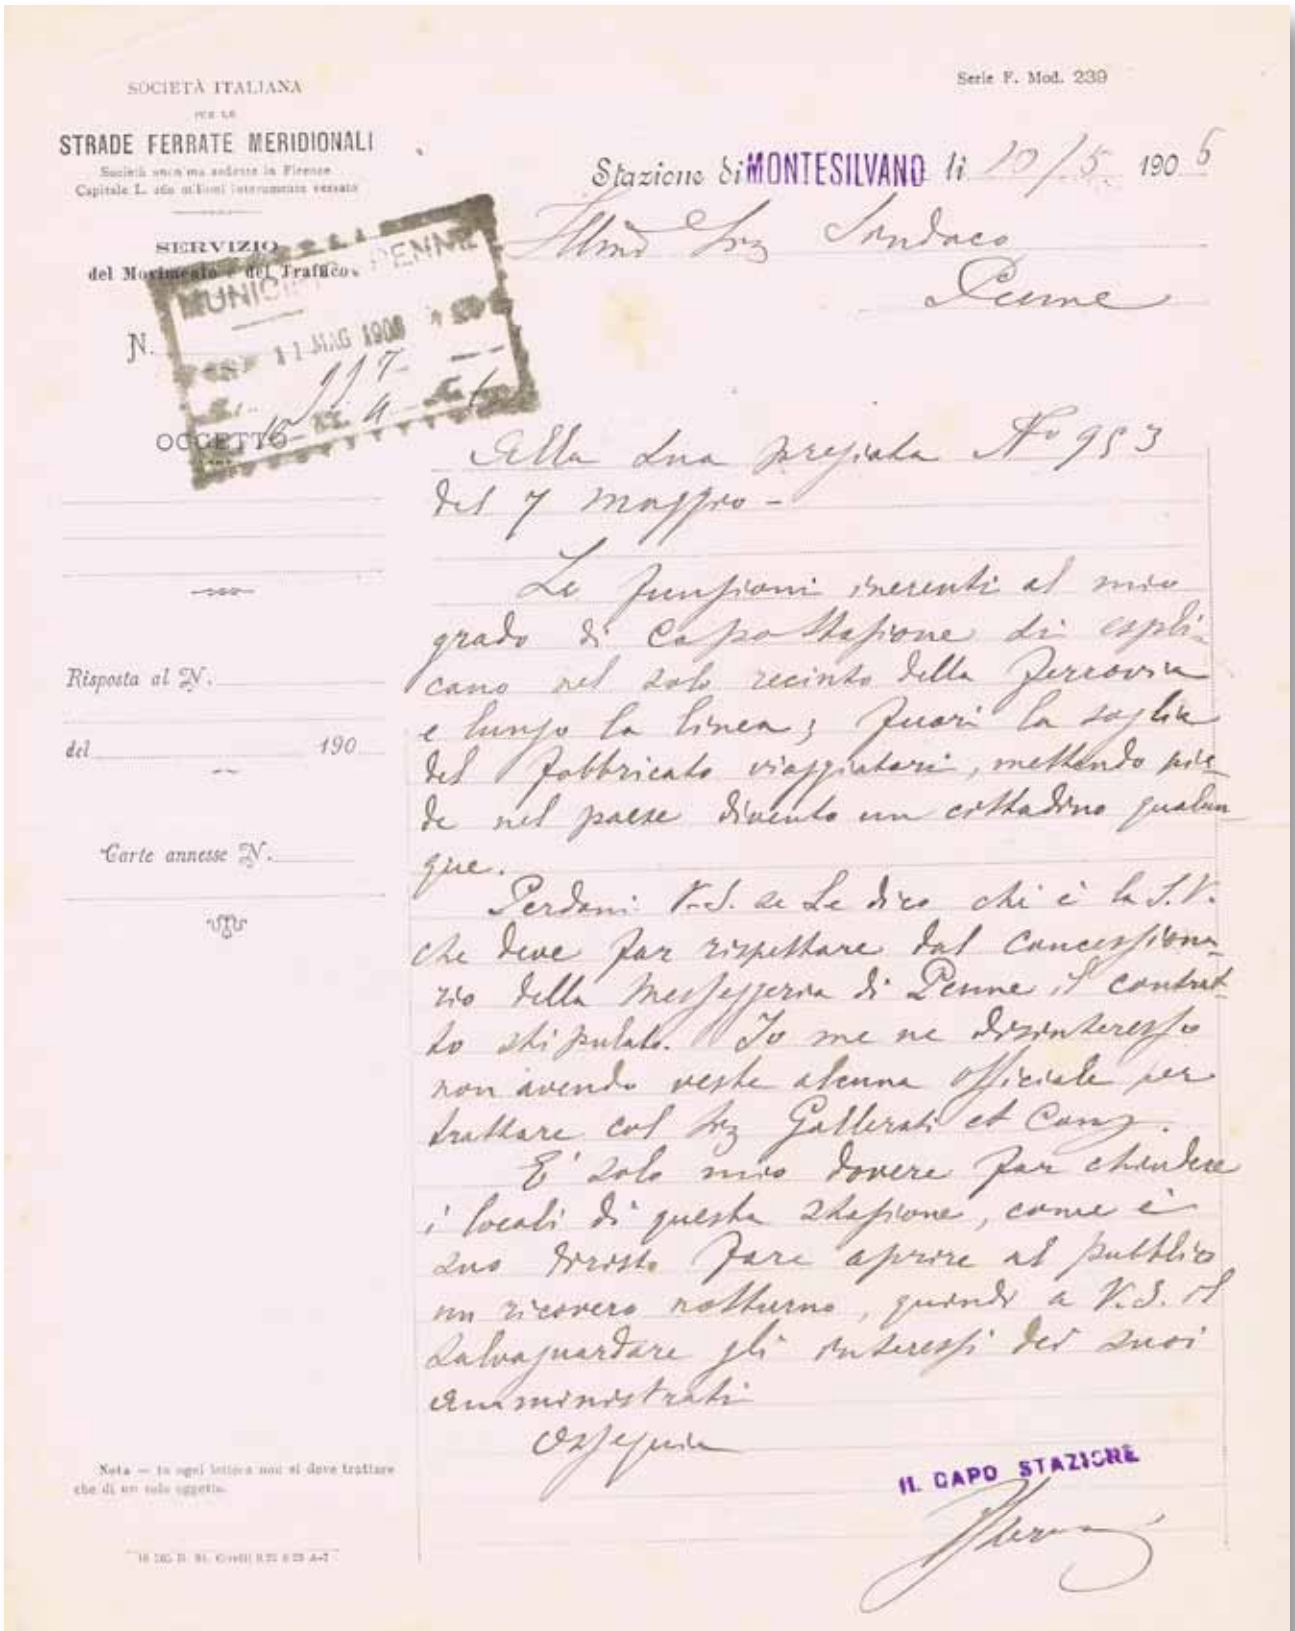 SOCIETÀ ITALIANA
PER LE
STRADE FERRATE MERIDIONALI
Società anonima sedente in Firenze
Capitale L. 260 milioni interamente versato
SERVIZIO
del Movimento e del Traffico
N.
OGGETTO
MUNICIPIO PENNE
11 MAG 1906
997
Risposta al N.
del 190
Carte annesse N.
Nota — In ogni lettera non si deve trattare
che di un solo oggetto.
Serie F. Mod. 239
Stazione di MONTESILVANO li 10/5 1906
Illmo Sig Sindaco
Penne
Alla sua pregiata No 953
del 7 maggio -
Le funzioni inerenti al mio
grado di Capo Stazione si espli-
cano nel solo recinto della ferrovia
e lungo la linea; fuori la soglia
del fabbricato viaggiatori, mettendo pie-
de nel paese divento un cittadino qualun
que.
Perdoni V.S. se Le dico chi è la S.V.
che deve far rispettare dal concessiona-
rio della Messaggeria di Penne il contrat-
to stipulato. Io me ne disinteresso
non avendo veste alcuna officiale per
trattare col Sig Gallerati et Comp.
E' solo mio dovere far chiudere
i locali di questa stazione, come è
suo diritto fare aprire al pubblico
un ricovero notturno, quindi a V.S. il
salvaguardare gli interessi dei suoi
amministrati
Ossequia
IL CAPO STAZIONE